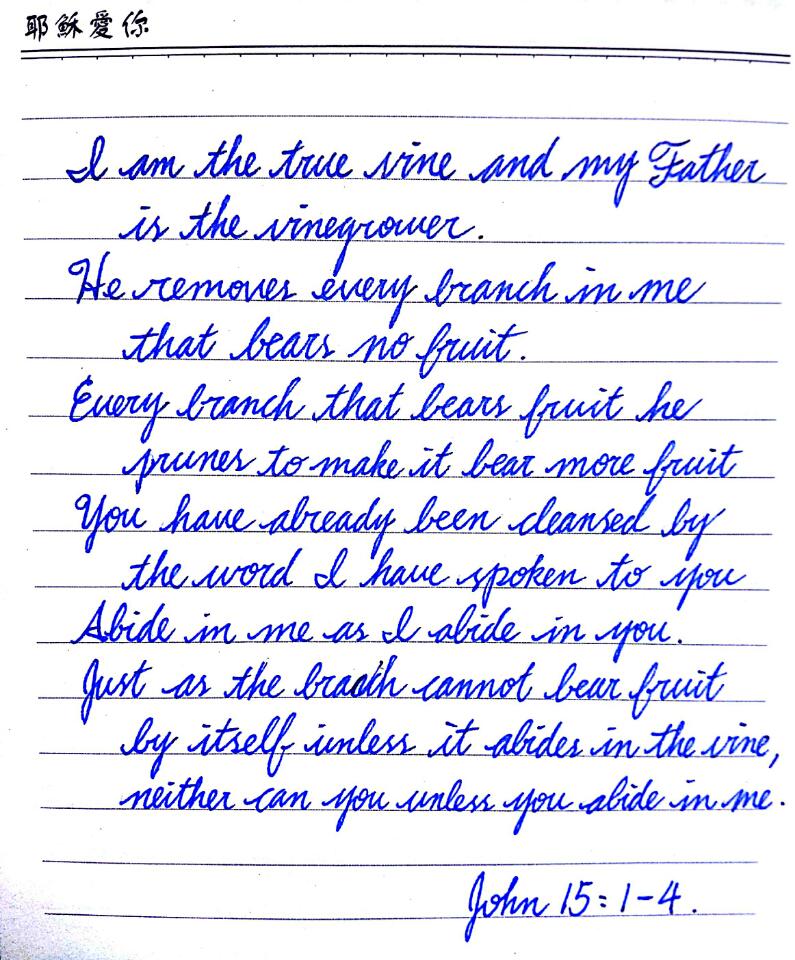 耶穌愛你
I am the true vine and my Father
is the vinegrower.
He removes every branch in me
that bears no fruit.
Every branch that bears fruit he
prunes to make it bear more fruit
You have already been cleansed by
the word I have spoken to you
Abide in me as I abide in you.
Just as the cannot bear fruit
by itself unless it abides in the vine,
neither can you unless you abide in me.
John 15:1-4.